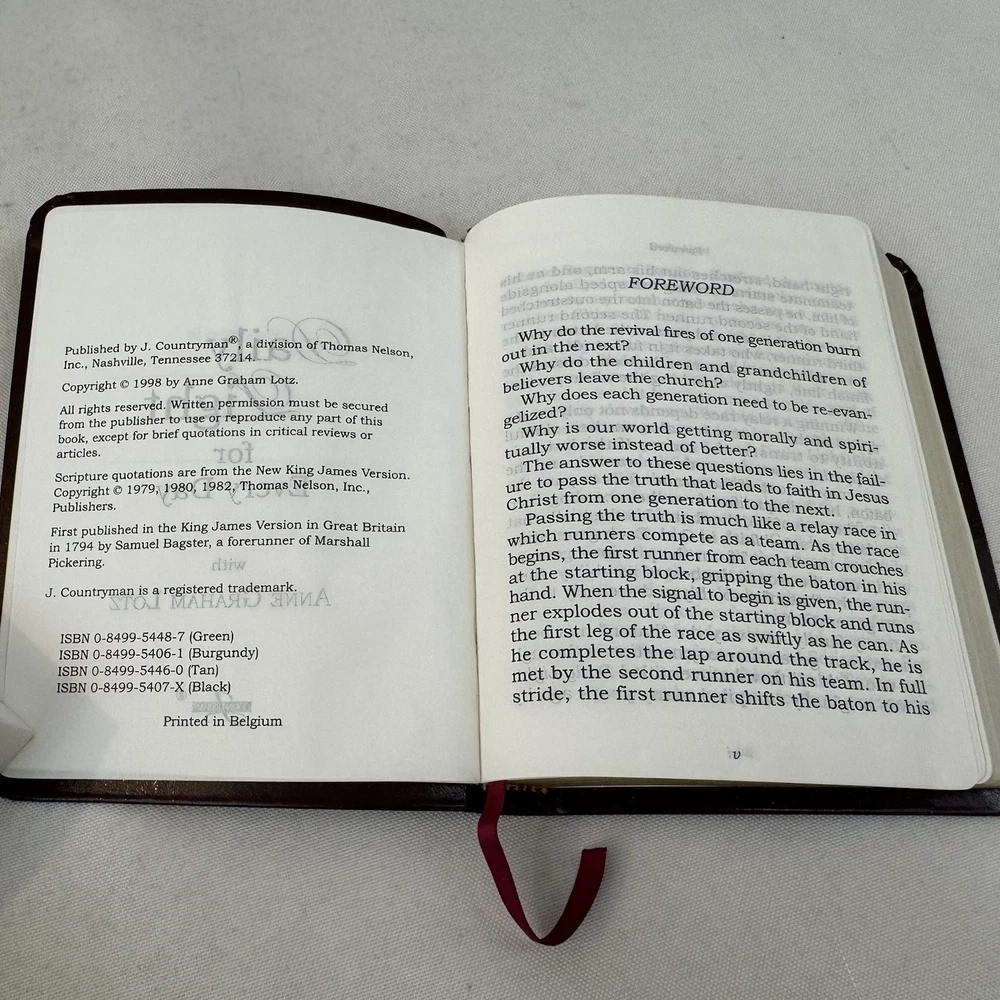 Published by J. Countryman®, a division of Thomas Nelson,
Inc., Nashville, Tennessee 37214.
Copyright © 1998 by Anne Graham Lotz.
All rights reserved. Written permission must be secured
from the publisher to use or reproduce any part of this
book, except for brief quotations in critical reviews or
articles.
Scripture quotations are from the New King James Version.
Copyright © 1979, 1980, 1982, Thomas Nelson, Inc.,
Publishers.
First published in the King James Version in Great Britain
in 1794 by Samuel Bagster, a forerunner of Marshall
Pickering.
J. Countryman is a registered trademark.
ISBN 0-8499-5448-7 (Green)
ISBN 0-8499-5406-1 (Burgundy)
ISBN 0-8499-5446-0 (Tan)
ISBN 0-8499-5407-X (Black)
Printed in Belgium
FOREWORD
Why do the revival fires of one generation burn
out in the next?
Why do the children and grandchildren of
believers leave the church?
Why does each generation need to be re-evan-
gelized?
Why is our world getting morally and spiri-
tually worse instead of better?
The answer to these questions lies in the fail-
ure to pass the truth that leads to faith in Jesus
Christ from one generation to the next.
Passing the truth is much like a relay race in
which runners compete as a team. As the race
begins, the first runner from each team crouches
at the starting block, gripping the baton in his
hand. When the signal to begin is given, the run-
ner explodes out of the starting block and runs
the first leg of the race as swiftly as he can. As
he completes the lap around the track, he is
met by the second runner on his team. In full
stride, the first runner shifts the baton to his
v